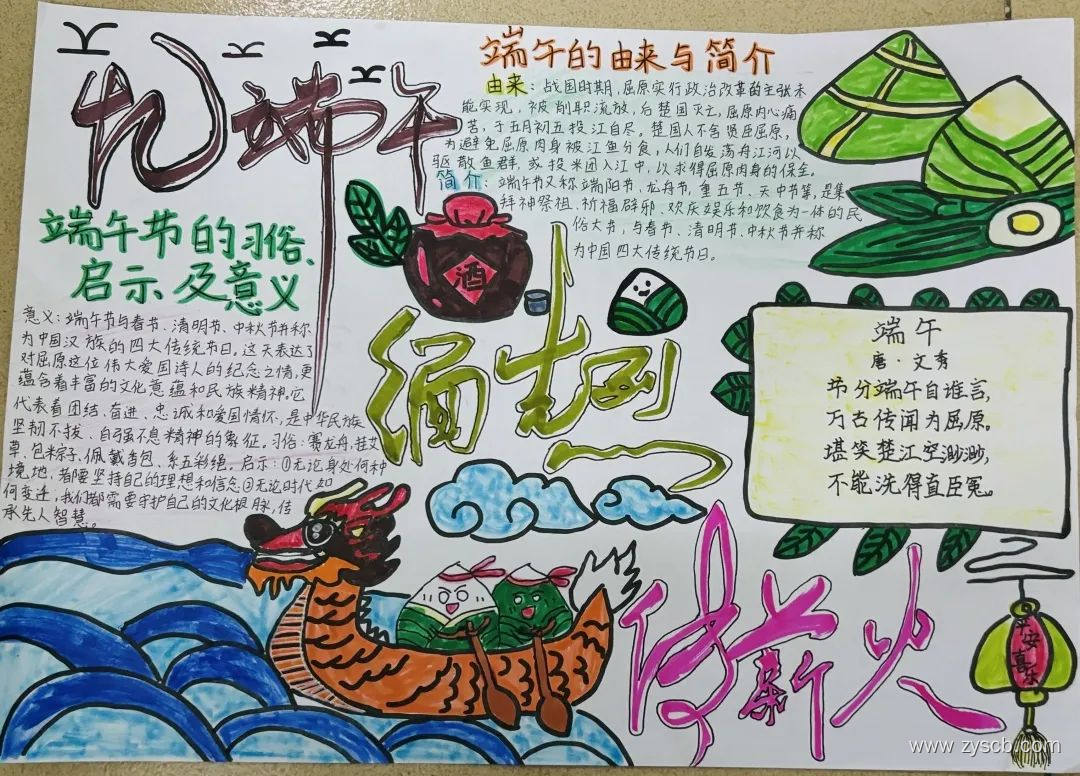 礼端午
端午的由来与简介
由来：战国时期，屈原实行政治改革的主张未
能实现，被削职流放，后楚国灭亡，屈原内心痛
苦，于五月初五投江自尽。楚国人不舍贤臣屈原，
为避免屈原肉身被江鱼分食，人们自发荡舟江河以
驱散鱼群，或投米团入江中，以求得屈原肉身的保全。
简介：端午节又称端阳节、龙舟节、重五节、天中节等，是集
拜神祭祖、祈福辟邪、欢庆娱乐和饮食为一体的民
俗大节，与春节、清明节、中秋节并称
为中国四大传统节日。
端午节的习俗、
启示、及意义
意义：端午节与春节、清明节、中秋节并称
为中国汉族的四大传统节日。这天表达了
对屈原这位伟大爱国诗人的纪念之情，更
蕴含着丰富的文化意蕴和民族精神。它
代表着团结、奋进、忠诚和爱国情怀，是中华民族
坚韧不拔、自强不息精神的象征。习俗：赛龙舟、挂艾
草、包粽子、佩戴香包、系五彩绳。启示：①无论身处何种
境地，都要坚持自己的理想和信念②无论时代如
何变迁，我们都需要守护自己的文化根脉，传
承先人智慧。
酒
缅先烈
端午
唐·文秀
节分端午自谁言，
万古传闻为屈原。
堪笑楚江空渺渺，
不能洗得直臣冤。
传薪火
平安喜乐
www.zyscb.com